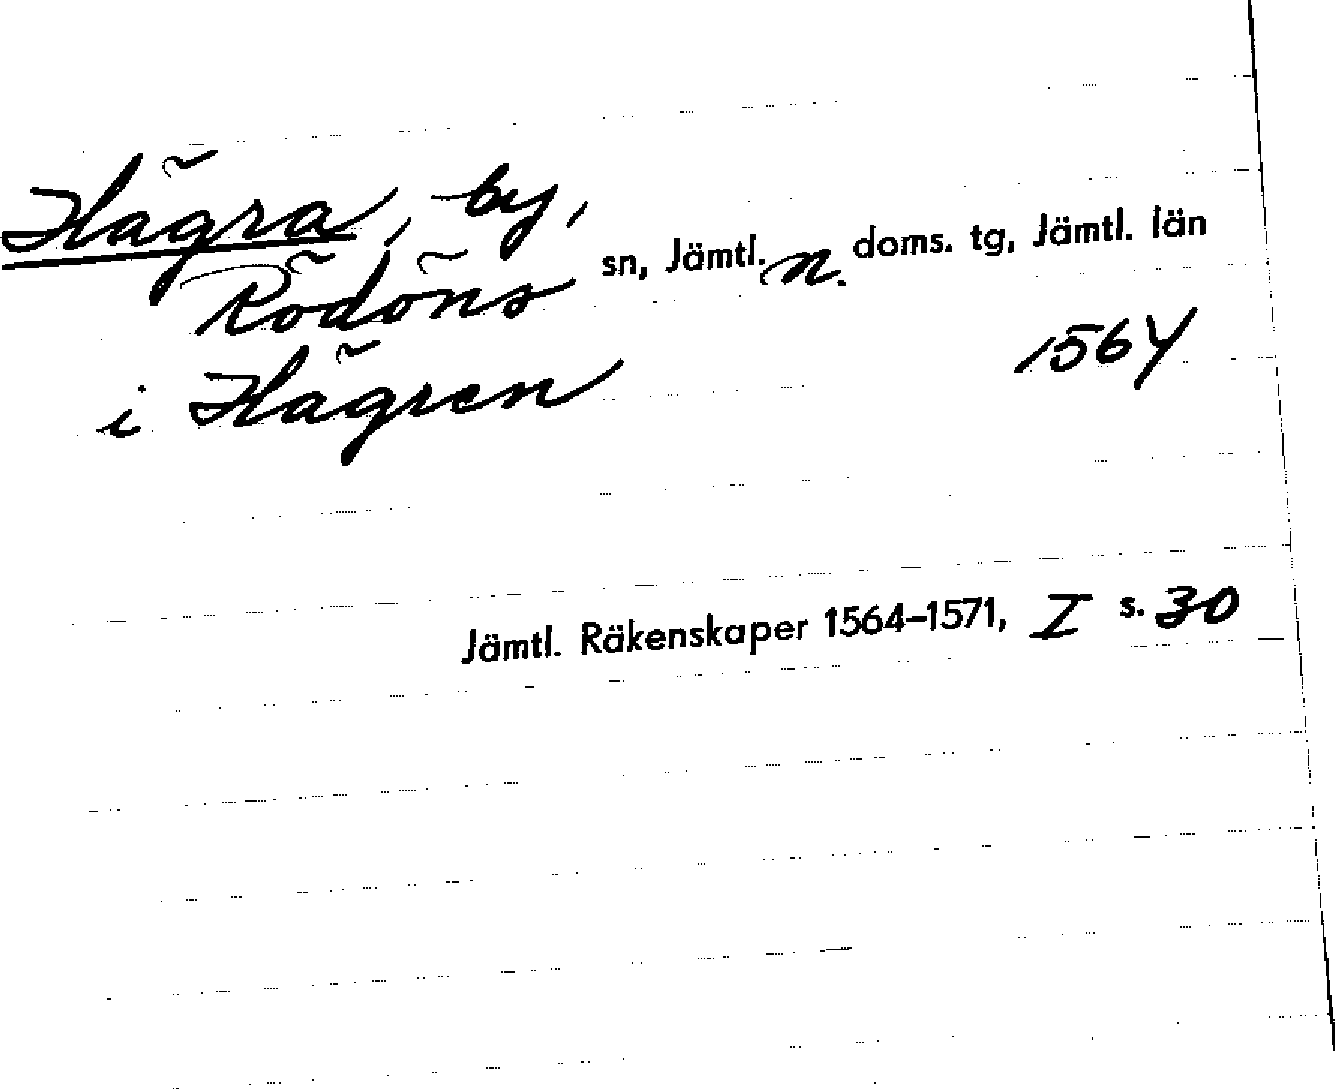 Hägra, by,
Rödöns sn, Jämtl. n. doms. tg, Jämtl. län
i Hägren 1564
Jämtl. Räkenskaper 1564–1571, I s. 30